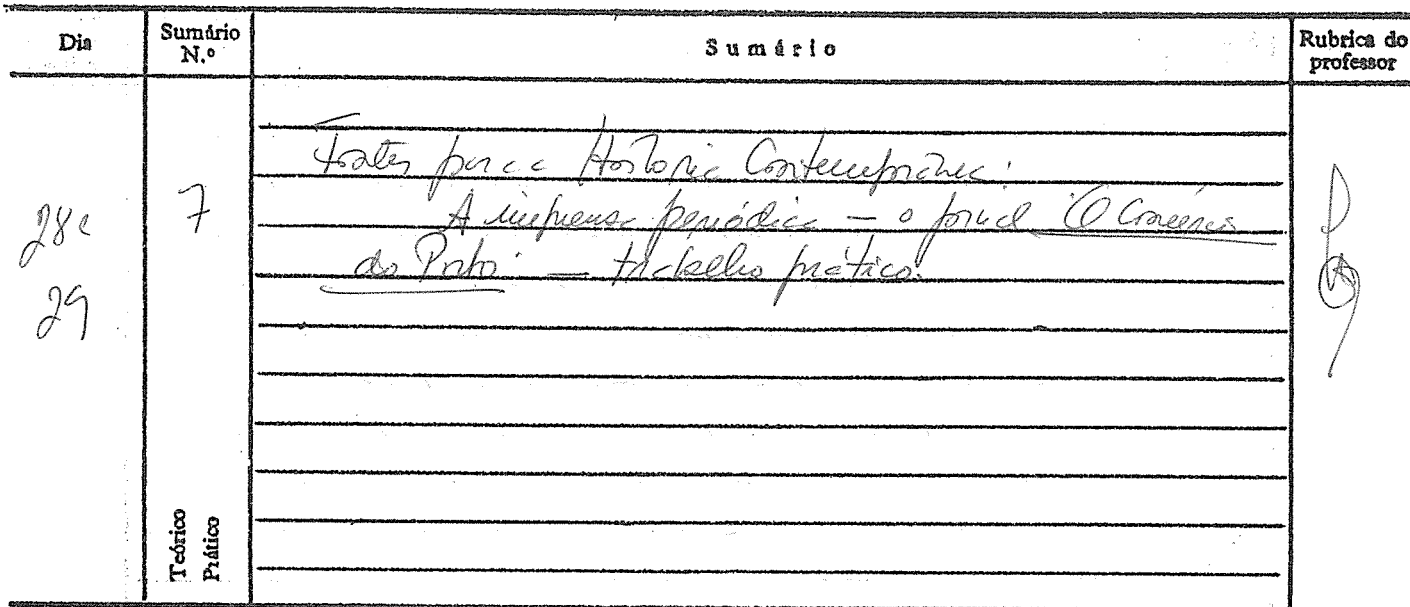 Dia
Sumário N.º
Sumário
Rubrica do professor
28 e 29
7
Fontes para a História Contemporânea:
A imprensa periódica — o jornal "O Comércio
do Porto" — trabalho prático.
Teórico
Prático